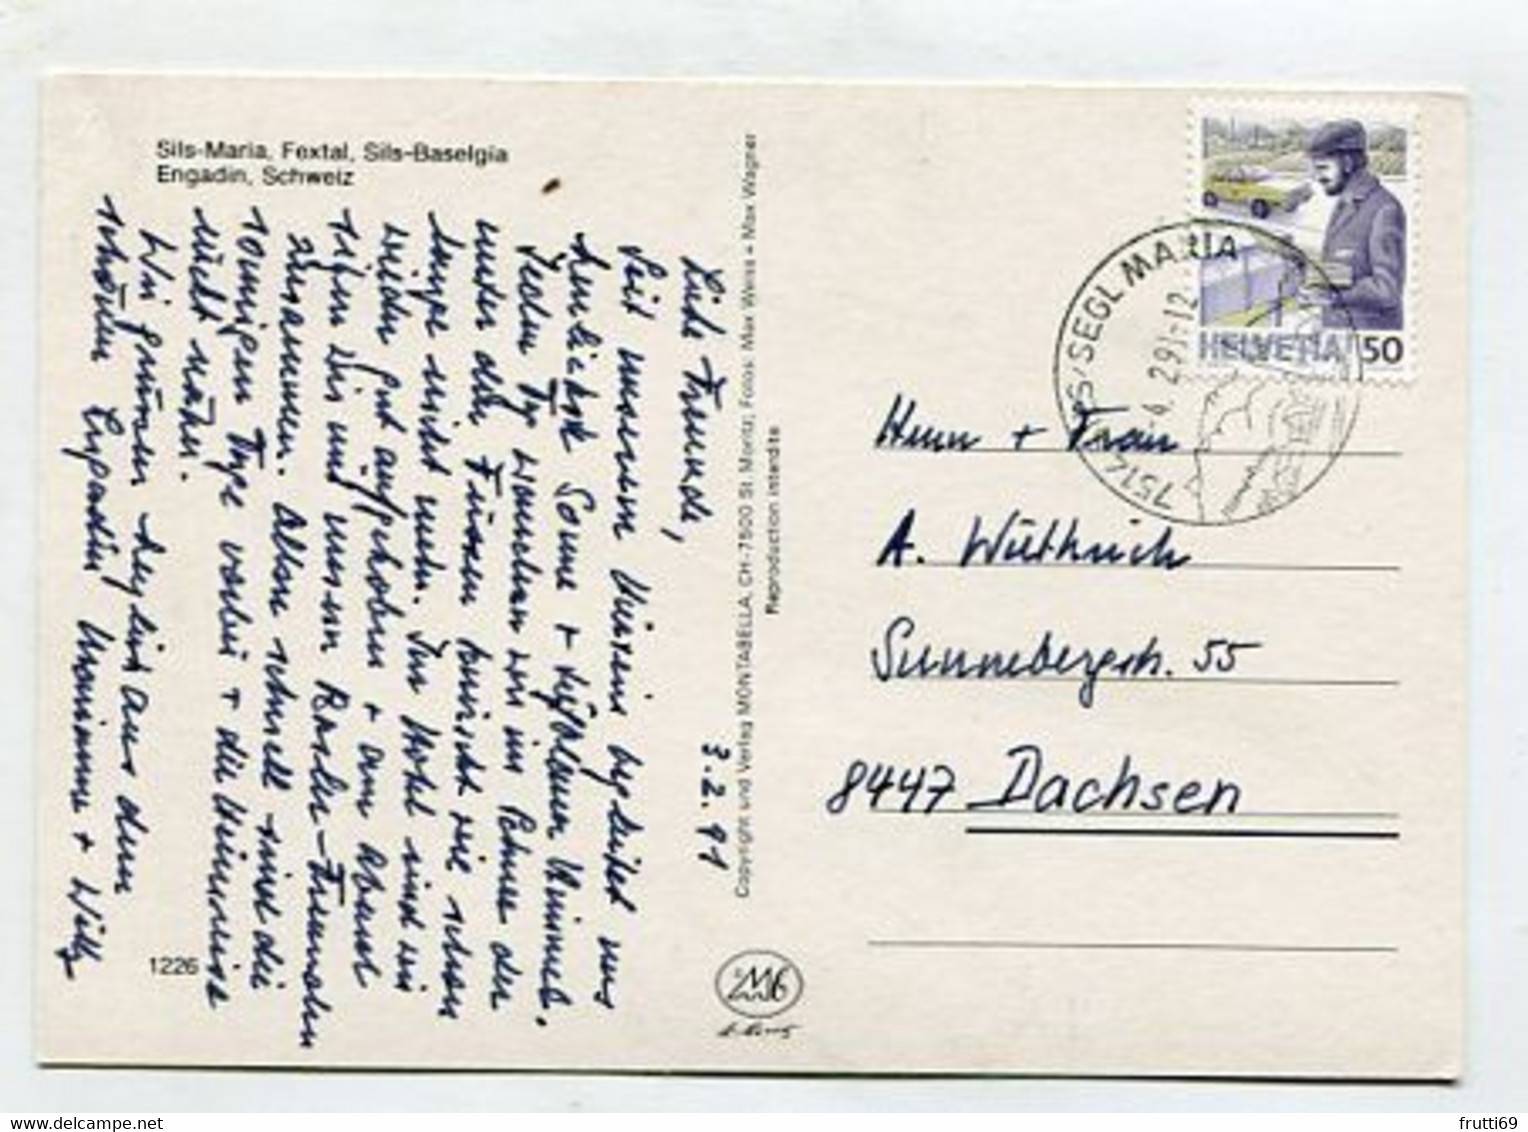 Sils-Maria, Fextal, Sils-Baselgia
Engadin, Schweiz
3.2.91
Liebe Freunde,
Seit unserem Hiersein begleitet uns
herrlichste Sonne + tiefblauer Himmel.
Jeden Tag wandern wir im Schnee der
unter den Füssen knirscht wie schon
lange nicht mehr. Im Hotel sind wir
wieder gut aufgehoben + am Abend
sitzen wir mit unsern Basler-Freunden
zusammen. Allzu schnell sind die
sonnigen Tage vorbei + die Heimreise
rückt näher.
Wir grüssen herzlich aus dem
schönen Engadin + Willy
1226
Copyright und Verlag MONTABELLA, CH-7500 St. Moritz; Fotos: Max Weiss + Max Wagner
Reproduction interdite
HELVETIA 50
7514 SILS/SEGL MARIA
-4.2.91-12
Herrn + Frau
A. Wüthrich
Sunnebergstr. 55
8447 Dachsen
frutti69